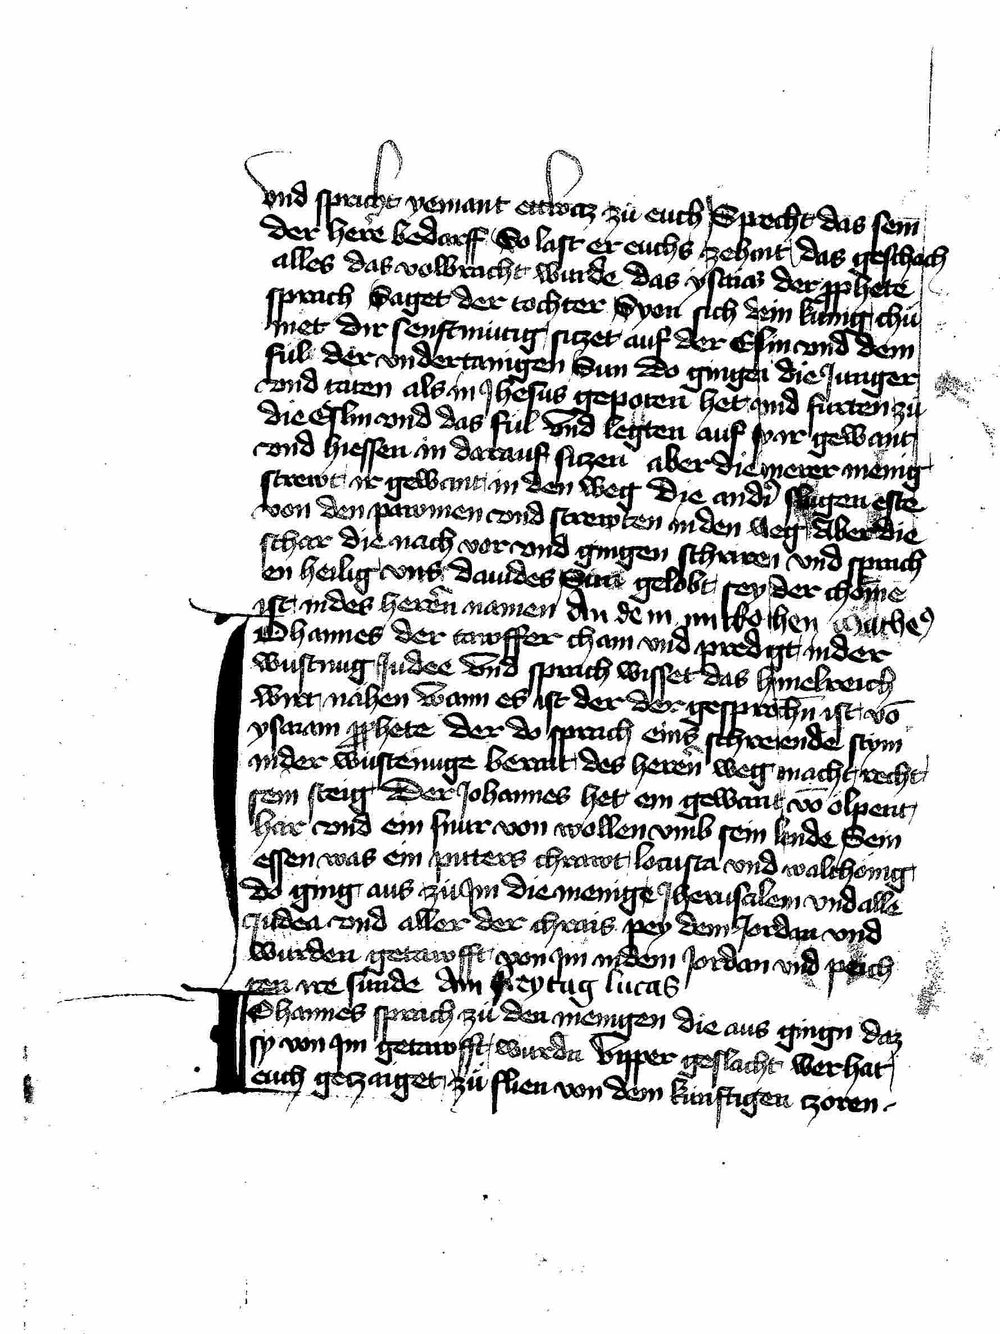 vnd spricht yemant ettwaz zu euch Sprecht das sein̄
der here bedarff So last er euchs zehant das geschach
alles das volbracht wurde das ysaias der ꝓphete
sprach Saget der tochter Syon sich dein kunig chu
met dir senftmutig siczet auf der Eslin vnd dem
ful der vndertanigen Sun do gingen die Junger
vnd taten als in Jhesus gepoten het vnd furten zu
die Eslin vnd das ful vnd legten auf sy ir gewant
vnd hiessen in darauf siczen aber die merer menig
strewt ir gewant in den weg die and͛ slugen este
von den pawmen vnd strewten in den weg Aber die
schar die nach vor vnd gingen schriren vnd sprach
en heilig vns dauides Sun gelobt sey der chom̄e
ist in des heren̄ namen An dem mitkochen Matheꝰ
Johannes der tawffer cham vnd predigt in der
wustung Judee vnd sprach wisset das himelreich
wirt nahen wann es ist der der gesproch̄n ist vō
ysaiam ꝓphete der do sprach eins schreiende stym
in der wustenuge berait des heren̄ weg macht recht
sein steig Der Johannes het ein gewant vō olpent
har vnd ein snur von wollen vmb sein lende Sein
essen was ein pitters chrawt locusta vnd walthonig
do ging aus zu Im die menige Jherusalem vnd alle
Judea vnd aller der chrais pey dem Jordan vnd
wurden getawfft von Im in dem Jordan vnd peich
ten ire sunde Am freytag lucas
Johannes sprach zu den menigen die aus gingn daz
sy von Im getawfft wurdn vipper geslacht wer hat
euch geczaiget zu flien von dem kunftigen czoren